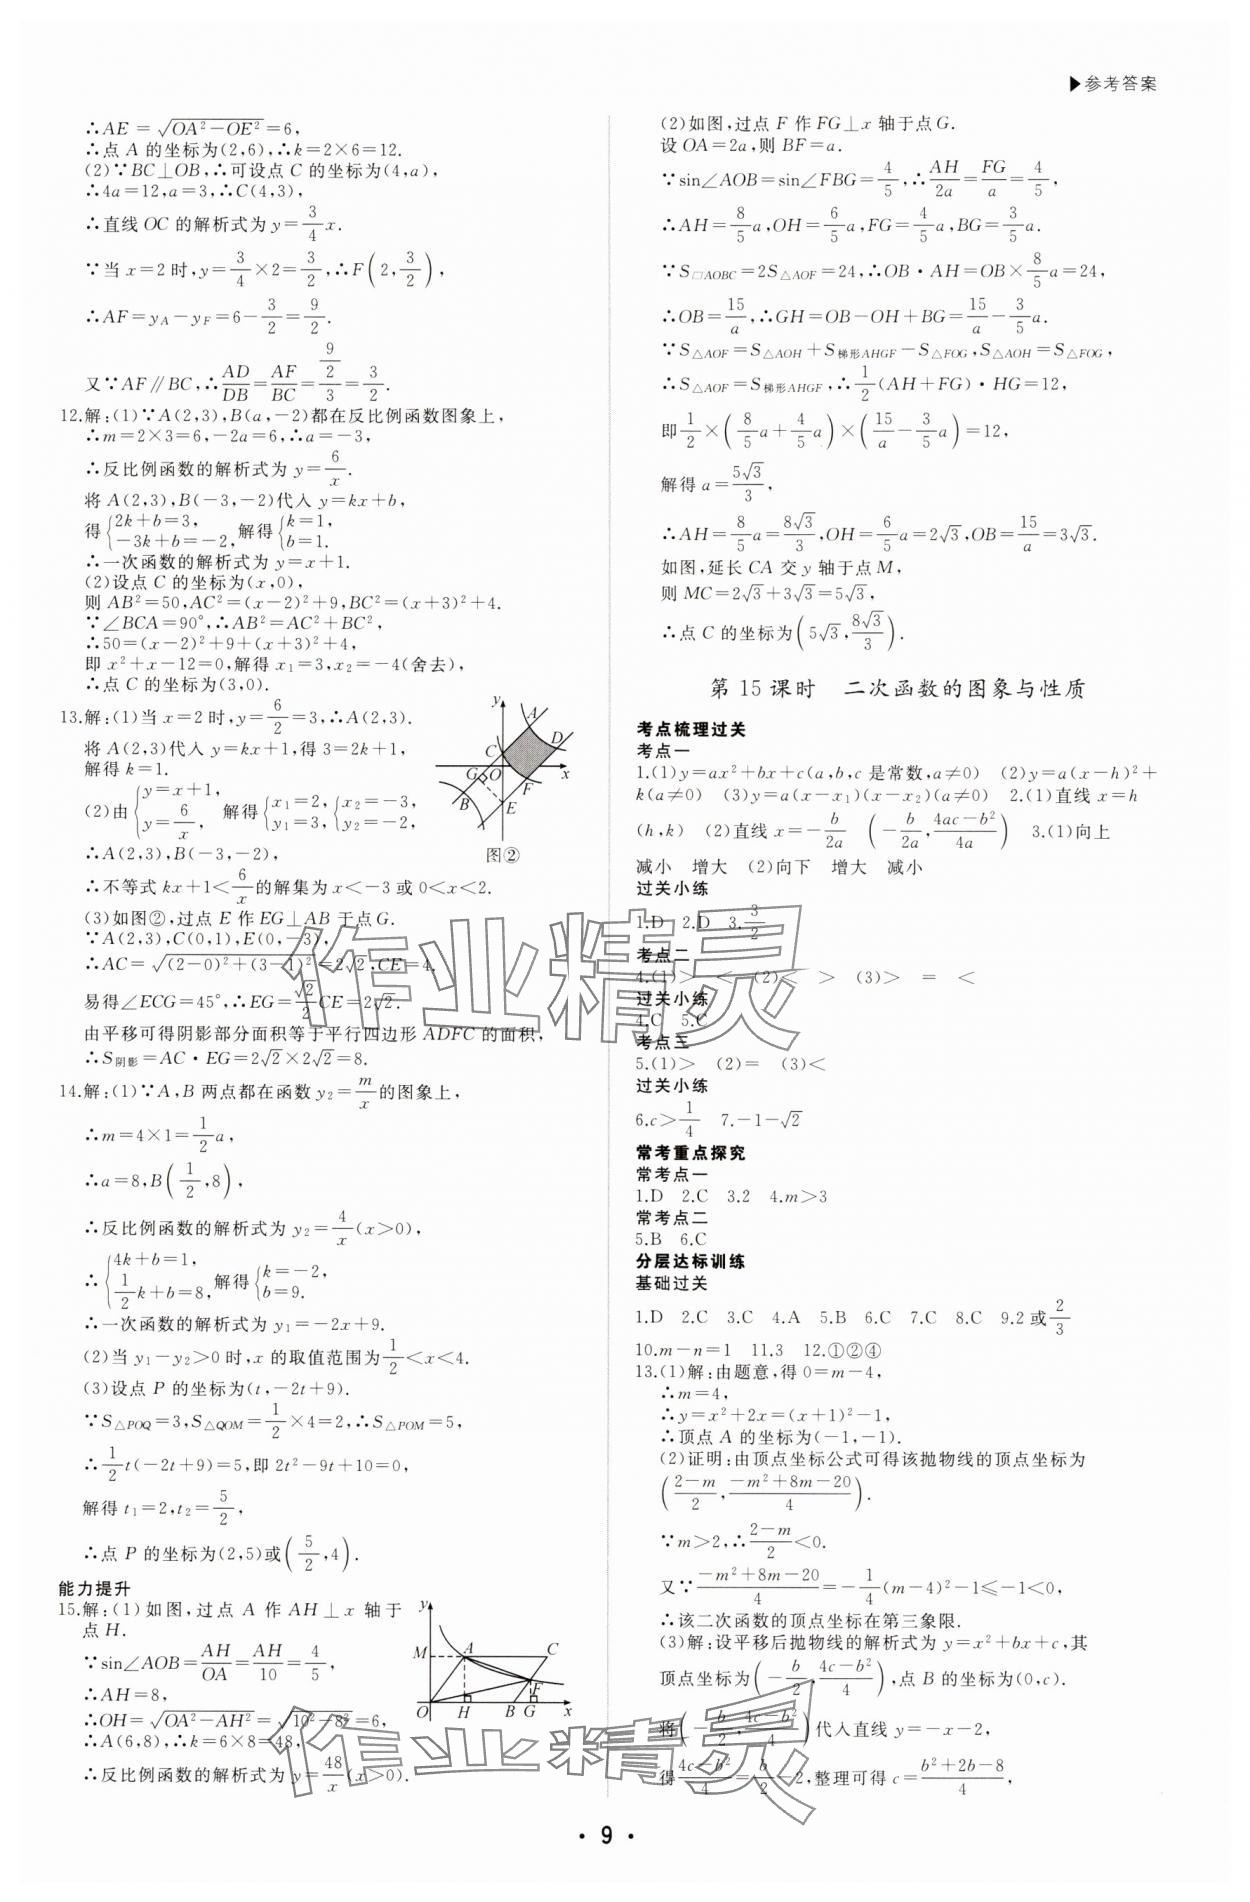 ▶参考答案
∴AE=√(OA²－OE²)=6,
∴点 A 的坐标为(2,6),∴k=2×6=12.
(2)∵BC⊥OB,∴可设点 C 的坐标为(4,a),
∴4a=12,a=3,∴C(4,3),
∴直线 OC 的解析式为 y=3/4 x.
∵当 x=2 时,y=3/4×2=3/2,∴F(2,3/2),
∴AF=y_A－y_F=6－3/2=9/2.
又∵AF∥BC,∴AD/DB=AF/BC=(9/2)/3=3/2.
12.解:(1)∵A(2,3),B(a,－2)都在反比例函数图象上,
∴m=2×3=6,－2a=6,∴a=－3,
∴反比例函数的解析式为 y=6/x.
将 A(2,3),B(－3,－2)代入 y=kx+b,
得{2k+b=3, －3k+b=－2, 解得{k=1, b=1.
∴一次函数的解析式为 y=x+1.
(2)设点 C 的坐标为(x,0),
则 AB²=50,AC²=(x－2)²+9,BC²=(x+3)²+4.
∵∠BCA=90°,∴AB²=AC²+BC²,
∴50=(x－2)²+9+(x+3)²+4,
即 x²+x－12=0,解得 x₁=3,x₂=－4(舍去),
∴点 C 的坐标为(3,0).
13.解:(1)当 x=2 时,y=6/2=3,∴A(2,3).
将 A(2,3)代入 y=kx+1,得 3=2k+1,
解得 k=1.
(2)由{y=x+1, y=6/x, 解得{x₁=2, y₁=3, {x₂=－3, y₂=－2,
∴A(2,3),B(－3,－2),
∴不等式 kx+1<6/x的解集为 x<－3 或 0<x<2.
y A D C G O x B F E
图②
(3)如图②,过点 E 作 EG⊥AB 于点 G.
∵A(2,3),C(0,1),E(0,－3),
∴AC=√((2－0)²+(3－1)²)=2√2,CE=4.
易得∠ECG=45°,∴EG=√2/2 CE=2√2.
由平移可得阴影部分面积等于平行四边形 ADFC 的面积,
∴S阴影=AC·EG=2√2×2√2=8.
14.解:(1)∵A,B 两点都在函数 y₂=m/x的图象上,
∴m=4×1=1/2 a,
∴a=8,B(1/2,8),
∴反比例函数的解析式为 y₂=4/x(x>0),
∴{4k+b=1, 1/2 k+b=8, 解得{k=－2, b=9.
∴一次函数的解析式为 y₁=－2x+9.
(2)当 y₁－y₂>0 时,x 的取值范围为1/2<x<4.
(3)设点 P 的坐标为(t,－2t+9).
∵S△POQ=3,S△QOM=1/2×4=2,∴S△POM=5,
∴1/2 t(－2t+9)=5,即 2t²－9t+10=0,
解得 t₁=2,t₂=5/2,
∴点 P 的坐标为(2,5)或(5/2,4).
能力提升
15.解:(1)如图,过点 A 作 AH⊥x 轴于
点 H.
∵sin∠AOB=AH/OA=AH/10=4/5,
∴AH=8,
∴OH=√(OA²－AH²)=√(10²－8²)=6,
∴A(6,8),∴k=6×8=48,
∴反比例函数的解析式为 y=48/x(x>0).
y M A C F O H B G x
(2)如图,过点 F 作 FG⊥x 轴于点 G.
设 OA=2a,则 BF=a.
∵sin∠AOB=sin∠FBG=4/5,∴AH/2a=FG/a=4/5,
∴AH=8/5 a,OH=6/5 a,FG=4/5 a,BG=3/5 a.
∵S□AOBC=2S△AOF=24,∴OB·AH=OB×8/5 a=24,
∴OB=15/a,∴GH=OB－OH+BG=15/a－3/5 a.
∵S△AOF=S△AOH+S梯形AHGF－S△FOG,S△AOH=S△FOG,
∴S△AOF=S梯形AHGF,∴1/2(AH+FG)·HG=12,
即1/2×(8/5 a+4/5 a)×(15/a－3/5 a)=12,
解得 a=5√3/3,
∴AH=8/5 a=8√3/3,OH=6/5 a=2√3,OB=15/a=3√3.
如图,延长 CA 交 y 轴于点 M,
则 MC=2√3+3√3=5√3,
∴点 C 的坐标为(5√3,8√3/3).
第 15 课时 二次函数的图象与性质
考点梳理过关
考点一
1.(1)y=ax²+bx+c(a,b,c 是常数,a≠0) (2)y=a(x－h)²+
k(a≠0) (3)y=a(x－x₁)(x－x₂)(a≠0) 2.(1)直线 x=h
(h,k) (2)直线 x=－b/2a (－b/2a,(4ac－b²)/4a) 3.(1)向上
减小 增大 (2)向下 增大 减小
过关小练
1.D 2.D 3.3/2
考点二
4.(1)> < (2)< > (3)> = <
过关小练
4.C 5.C
考点三
5.(1)> (2)= (3)<
过关小练
6.c>1/4 7.－1－√2
常考重点探究
常考点一
1.D 2.C 3.2 4.m>3
常考点二
5.B 6.C
分层达标训练
基础过关
1.D 2.C 3.C 4.A 5.B 6.C 7.C 8.C 9.2或2/3
10.m－n=1 11.3 12.①②④
13.(1)解:由题意,得 0=m－4,
∴m=4,
∴y=x²+2x=(x+1)²－1,
∴顶点 A 的坐标为(－1,－1).
(2)证明:由顶点坐标公式可得该抛物线的顶点坐标为
((2－m)/2,(－m²+8m－20)/4).
∵m>2,∴(2－m)/2<0.
又∵(－m²+8m－20)/4=－1/4(m－4)²－1≤－1<0,
∴该二次函数的顶点坐标在第三象限.
(3)解:设平移后抛物线的解析式为 y=x²+bx+c,其
顶点坐标为(－b/2,(4c－b²)/4),点 B 的坐标为(0,c).
将(－b/2,(4c－b²)/4)代入直线 y=－x－2,
得(4c－b²)/4=b/2－2,整理可得 c=(b²+2b－8)/4,
作业精灵
作业精灵
·9·